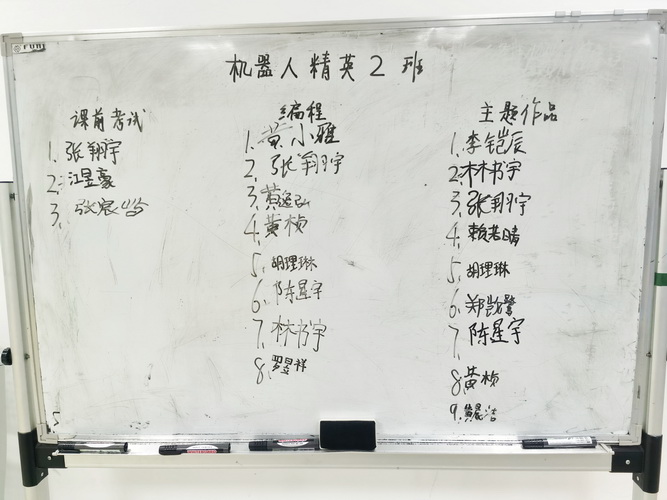 机器人精英2班
课前考试
1.张翔宇
2.江昱豪
3.张宸
编程
1.黄小雅
2.张翔宇
3.黄逸弘
4.黄桢
5.胡理琳
6.陈星宇
7.林书宇
8.罗昱祥
主题作品
1.李铠辰
2.林书宇
3.张翔宇
4.赖若晴
5.胡理琳
6.郑凯
7.陈星宇
8.黄桢
9.